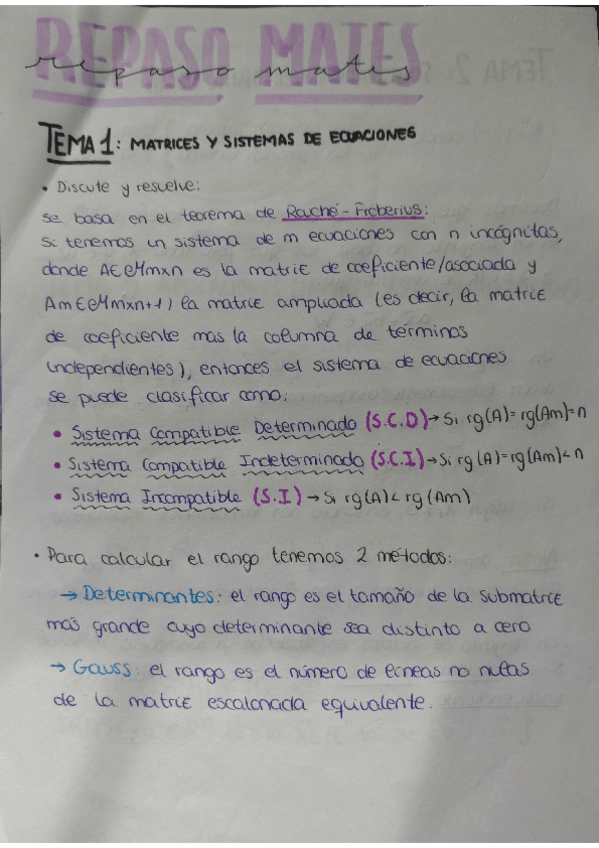 REPASO MATES
repaso mates
TEMA 1: MATRICES Y SISTEMAS DE ECUACIONES
• Discute y resuelve:
se basa en el teorema de Rouché-Froberius:
Si tenemos un sistema de m ecuaciones con n incógnitas,
donde A∈Mmxn es la matriz de coeficiente/asociada y
Am∈Mmxn+1) la matriz ampliada (es decir, la matriz
de coeficiente mas la columna de términos
independientes), entonces el sistema de ecuaciones
se puede clasificar como:
• Sistema Compatible Determinado (S.C.D) → Si rg(A)=rg(Am)=n
• Sistema Compatible Indeterminado (S.C.I) → Si rg(A)=rg(Am)<n
• Sistema Incompatible (S.I) → Si rg(A)<rg(Am)
• Para calcular el rango tenemos 2 métodos:
→ Determinantes: el rango es el tamaño de la submatriz
más grande cuyo determinante sea distinto a cero
→ Gauss: el rango es el número de líneas no nulas
de la matriz escalonada equivalente.